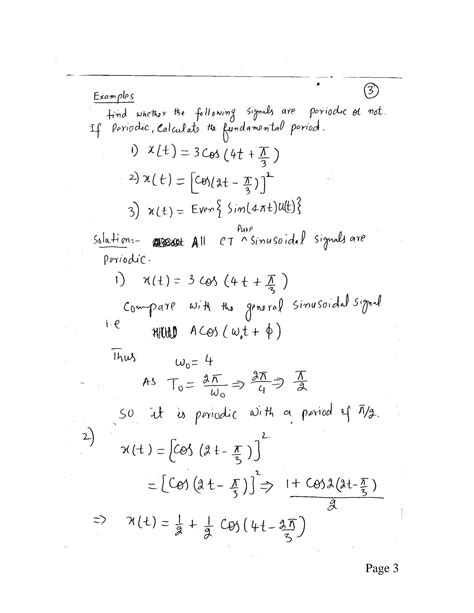 (3)
Examples
find whether the following signals are periodic or not.
If Periodic, Calculate the fundamental period.
1) x(t) = 3 Cos (4t + π/3)
2) x(t) = [Cos(2t - π/3)]²
3) x(t) = Even{ Sin(4πt)u(t)}
Solution:- All CT ^Pure Sinusoidal Signals are
periodic.
1) x(t) = 3 cos (4t + π/3)
Compare with the general sinusoidal Signal
i.e A Cos (ω₀t + ϕ)
Thus ω₀ = 4
As T₀ = 2π/ω₀ ⇒ 2π/4 ⇒ π/2
SO it is periodic with a period of π/2.
2)
x(t) = [Cos (2t - π/3)]²
= [Cos (2t - π/3)]² ⇒ 1 + Cos2(2t-π/3)/2
⇒ x(t) = 1/2 + 1/2 Cos(4t - 2π/3)
Page 3